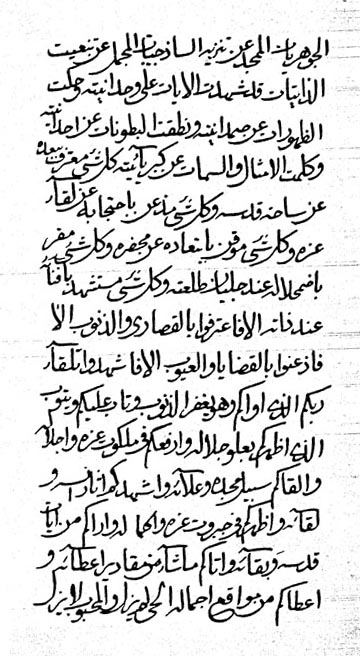 الجوهريات المجد عن تنزيه الساذجيات المجلل عن تبعيت
الذاتيات قد شهدت الايات على وحدانيته وحكت
الظهورات عن صمدانيته ونطقت البطونات عن احدانيته
وكلمت الامثال والسمات عن كبريائيته كلشئ معترف ببعده
عن ساحته قدسه وكلشئ مذعن باحتجابه عن لقاء
عزه وكلشئ موقن بابتعاده عن محضره وكلشئ مقر
باضمحلاله عند جليات طلعته وكلشئ مستشهد بافناء
عند ذاته الا فاعترفوا بالقصاري والذنوب الا
فاذعنوا بالقضايا والعيوب الا فاشهدوا تلقاء
ربكم الذي اواكم وهو يغفر الذنوب وتاب عليكم ويتوب
الذي اظهركم بعلو جلاله وارفعكم في ملكوت عزه واجلاله
والقاكم سبيل مجده وعلائه واشهدكم انا انسه و
لقائه واظهركم في جبروت عزه واكماله واراكم من ايات
قدسه وبقائه واتاكم ما شاء من مقادير اعطائه و
اعطاكم من مواقع اجماله الحي لم يزل والمحبوب لا يزل